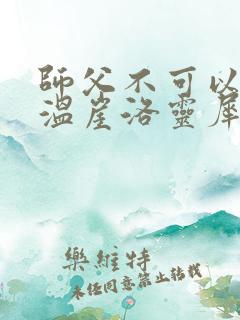 師父不可以
溫崖洛靈犀
樂維特
未經同意禁止轉載